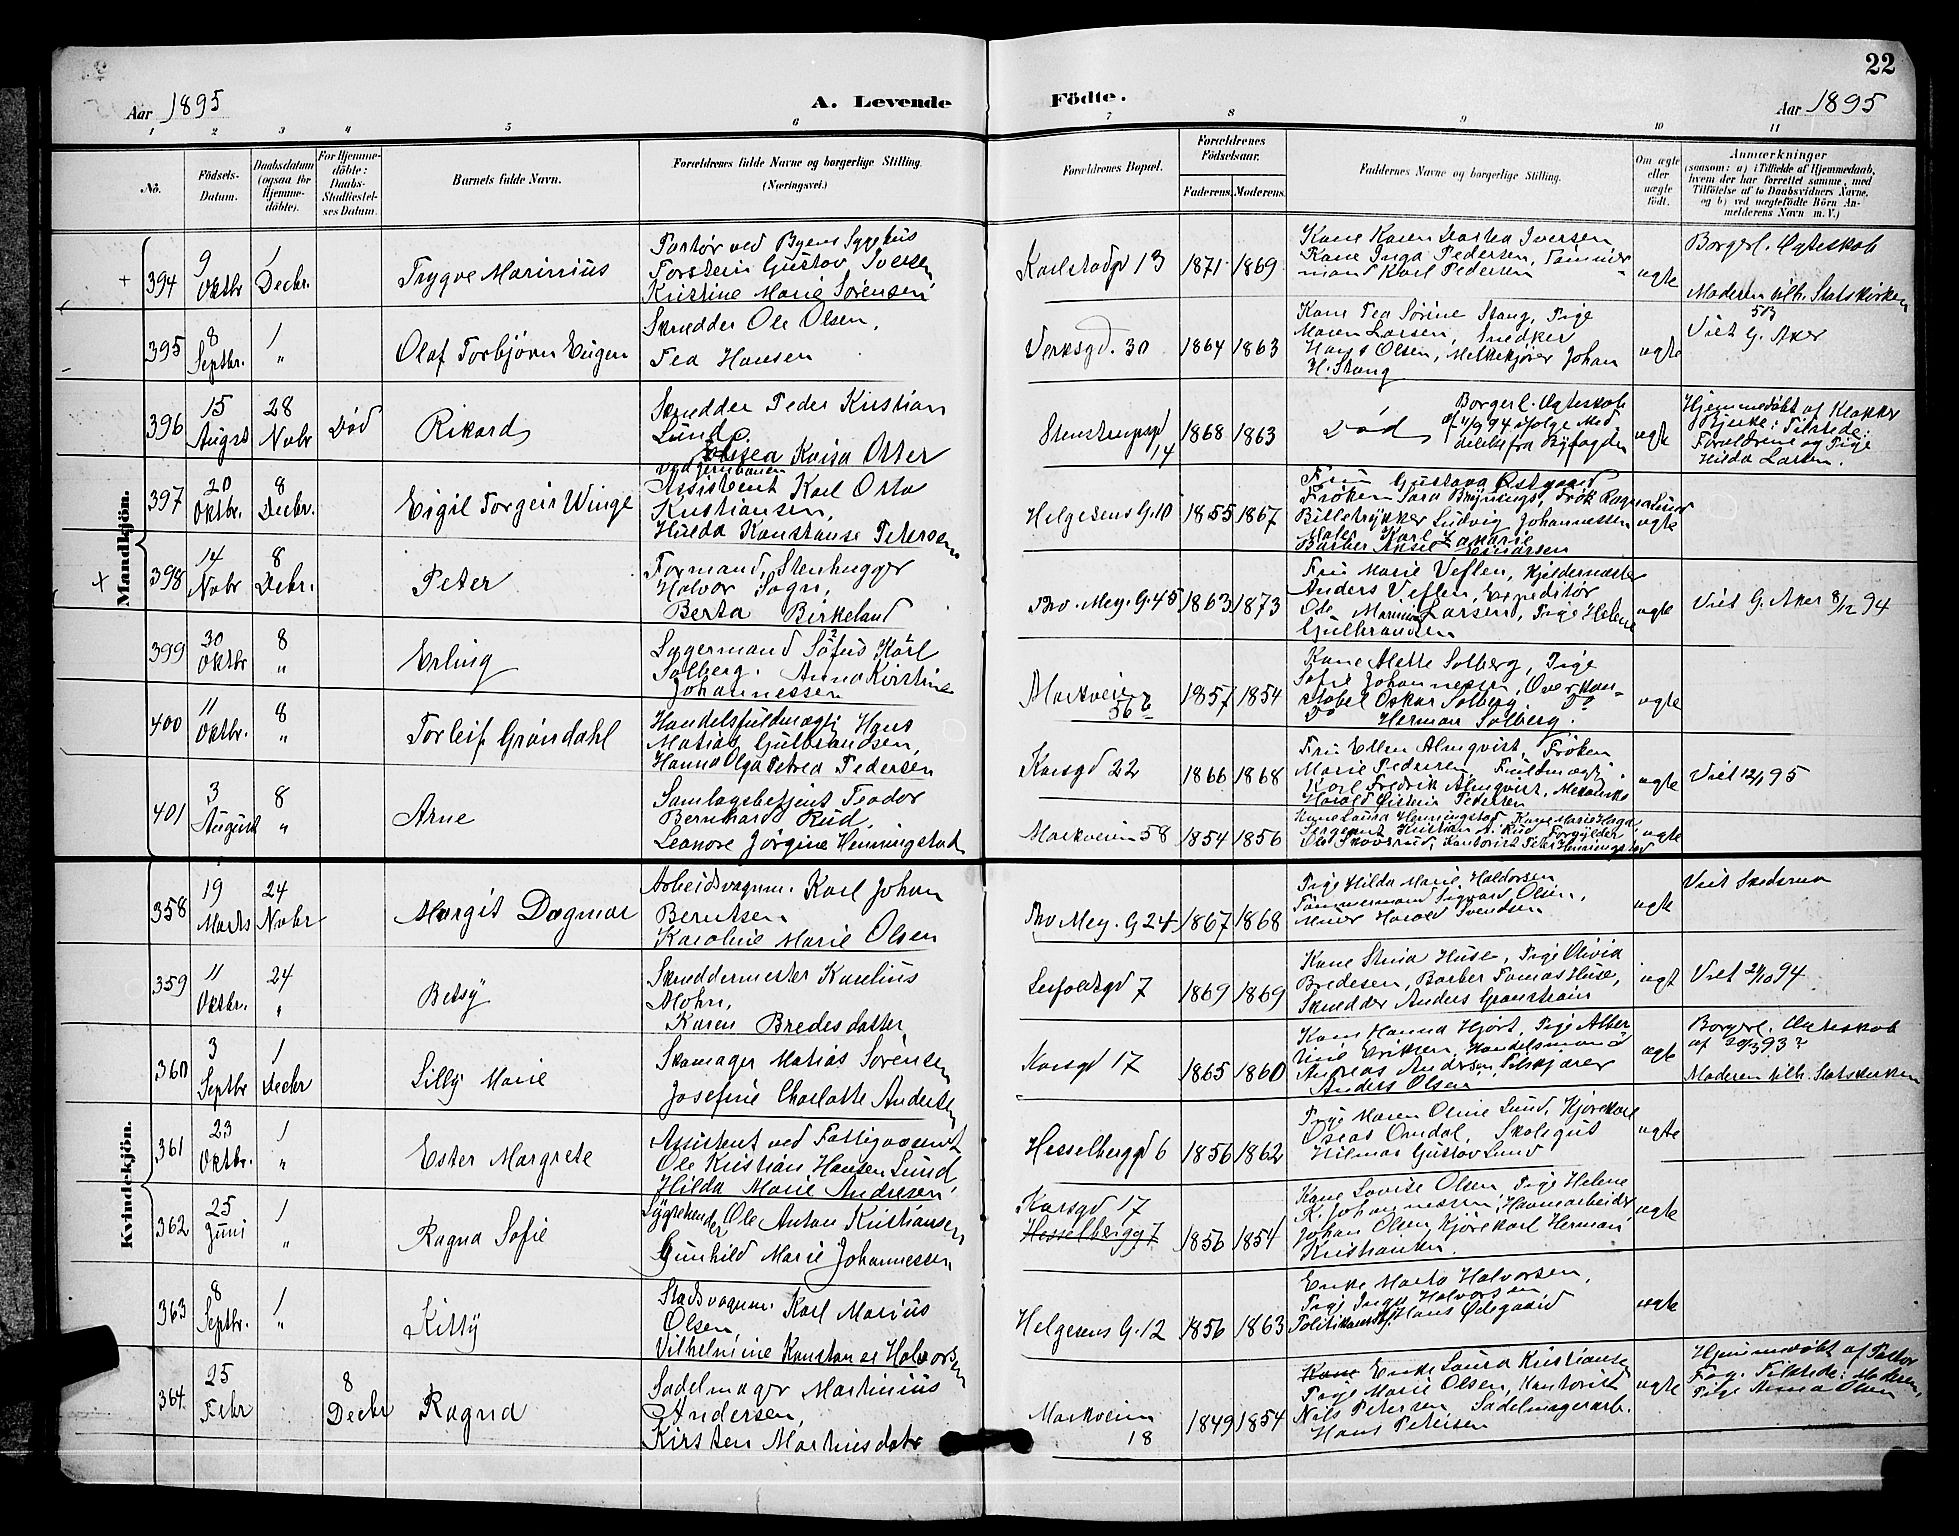 22
Aar 1895
A. Levende Födte.
Aar 1895
1 2 3 4 5 6 7 8 9 10 11
No.
Födsels-
Datum.
Daabsdatum
(ogsaa for
Hjemme-
döbte).
For Hjemme-
döbte:
Daabs-
Stadfæstel-
ses Datum.
Barnets fulde Navn.
Forældrenes fulde Navne og borgerlige Stilling.
(Næringsvei.)
Forældrenes Bopæl.
Forældrenes
Födselsaar.
Faderens. Moderens.
Faddernes Navne og borgerlige Stilling.
Om ægte
eller
uægte
födt.
Anmærkninger
(saasom: a) i Tilfælde af Hjemmedaab,
hvem der har forrettet samme, med
Tilföielse af to Daabsvidners Navne,
og b) ved uægtefödte Börn An-
melderens Navn m. V.)
Mandkjön.
+ 394
9
Oktbr
1
Decbr.
Trygve Marinius
Portør ved Byens Sygehus
Torstein Gustav Iversen
Kristine Marie Sørensen
Karlstadgd 13
1871 1869
Kone Karen Dortea Iversen,
Kone Inga Pedersen, Tømmer-
mand Karl Pedersen
ægte
Borgerl. Ægteskab
Moderen tilh. Statskirken
395
8
Septbr.
1
"
Olaf Torbjørn Eugen
Skrædder Ole Olsen,
Tea Hansen
Verksgd. 30
1864 1863
Kone Tea Sørine Stang, Pige
Maren Larsen, Snedker
Hans Olsen, Melkekjører Johan
H. Stang
ægte
Viet G. Aker
396
15
Augst
28
Novbr
Død
Rikard
Skrædder Peder Kristian
Lund,
Kaisa Otter
Stenstrupsgd
14
1868 1863
Død
Borgerl. Ægteskab
af 11/9 94 ifølge Med-
delelse fra Byfogden
ægte
Hjemmedøbt af Klokker
Bjerke: Tilstede:
Forældrene og Pige
Hilda Larsen.
397
20
Oktbr.
8
Decbr.
Eigil Torgeir Winge
ved Jernbanen
Assistent Karl Otto
Kristiansen,
Hulda Konstanse Petersen
Helgesens G. 10
1855 1867
Fru Gustava Østgaard
Frøken Sara Brynings, Frøk Ragna Lund
Billetrykker Ludvig Johannessen
Maler Karl Zakarie
Barber Aksel Einarsen
ægte
x 398
14
Novbr
8
Decbr.
Peter
Formand, Stenhugger
Halvor Sogn,
Berta Birkeland
Thv. Mey. G. 45
1863 1873
Fru Marie Veflen, Kjeldermester
Anders Veflen, Expeditør
Ole Larsen, Pige Helene
Gulbrandsen
ægte
Viet G. Aker 8/12 94
399
30
Oktbr
8
"
Erling
Lygtermand Sofus Karl
Solberg. Anna Kirstine
Johannessen
Markveien
56 b
1857 1854
Kone Alette Solberg, Pige
Sofie Johannessen, Overkon-
stabel Oskar Solberg,
Do Herman Solberg.
ægte
400
11
Oktbr.
8
"
Torleif Grøndahl
Handelsfuldmægtig Hans
Matias Gulbrandsen,
Hanna Olga Petrea Pedersen
Korsgd 22
1866 1868
Fru Ellen Almqvist, Frøken
Marie Pedersen Fuldmægtig
Karl Fredrik Almqvist, Mekaniker
Harald Øistein Pedersen
ægte
Viet 12/1 95
401
3
August
8
"
Arne
Samlagsbetjent Teodor
Bernhard Rud,
Leonore Jørgine Henningstad
Markveien 58
1854 1856
Kone Laura Henningstad, Kone Marie Haga,
Sergeant Kristian A. Rud, Forgylder
Ole Skovrud, Kontorist Peter Henningstad
ægte
Kvindekjön.
358
19
Marts
24
Novbr
Margit Dagmar
Arbeidsvognm. Karl Johan
Berntsen
Karoline Marie Olsen
Thv Mey. G 24
1867 1868
Pige Hilda Marie Haldorsen
Tømmermand Sigvard Olsen,
Murer Harald Svendsen
ægte
Viet Skedsmo
359
11
Oktbr.
24
"
Betsy
Skræddermester Karelius
Mohn,
Karen Bredesdatter
Seifoldtsgd 7
1869 1869
Kone Stina Huse, Pige Olivia
Bredesen, Barber Tomas Huse,
Skrædder Anders Granstrøm
ægt
Viet 21/10 94
360
3
Septbr
1
Decbr
Lilly Marie
Skomager Matias Sørensen
Josefine Charlotte Andersen
Korsgd 17
1865 1860
Kone Hanna Hjort, Pige Alber-
tine Eriksen, Handelsmand
Andreas Andersen, Tilskjærer
Anders Olsen
ægte
Borgerl. Ægteskab
af 20/3 93?
Moderen tilh. Statskirken
361
23
Oktbr.
1
"
Ester Margrete
Assistent ved Fattigvæsenet
Ole Kristian Hansen Lund,
Hilda Marie Andresen
Hesselberggd 6
1856 1862
Pige Maren Oline Lund, Kjørekarl
Oseas Omdal, Skolegut
Hilmar Gustav Lund
ægte
362
25
Juni
1
"
Ragna Sofie
Ole Anton Kristiansen
Gunhild Marie Johannessen
Korsgd 17
Hesselbergg 7
1856 1854
Kone Lovise Olsen, Pige Helene
K. Johannessen, Havnearbeider
Johan Olsen, Kjørekarl Herman
Kristiansen.
ægte
363
8
Septbr.
1
"
Kitty
Stadsvognm. Karl Marius
Olsen,
Vilhelmine Konstanse Halvorsen
Helgesens G. 12
1856 1863
Enke Marta Halvorsen,
Pige Inga Halvorsen
Politikonst. Hans Ødegaard
ægte
364
25
Febr
8
Decbr
Ragna
Sadelmager Martinius
Andersen,
Kirsten Martinsdatr
Markveien
18
1849 1854
Kone Enke Laura Kristiansen
Pige Marie Olsen, Kontorist
Nils Petersen, Sadelmagerarb.
Hans Petersen
ægte
Hjemmedøbt af Pastor
Fog. Tilstede: Moderen,
Pige Anna Olsen